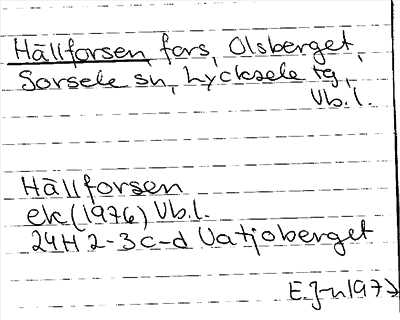 Hällforsen, fors, Olsberget,
Sorsele sn, Lycksele tg,
Vb.l.
Hällforsen
ek (1976) Vb.l.
24H 2-3 c-d Vatjoberget
E.J-n 1977